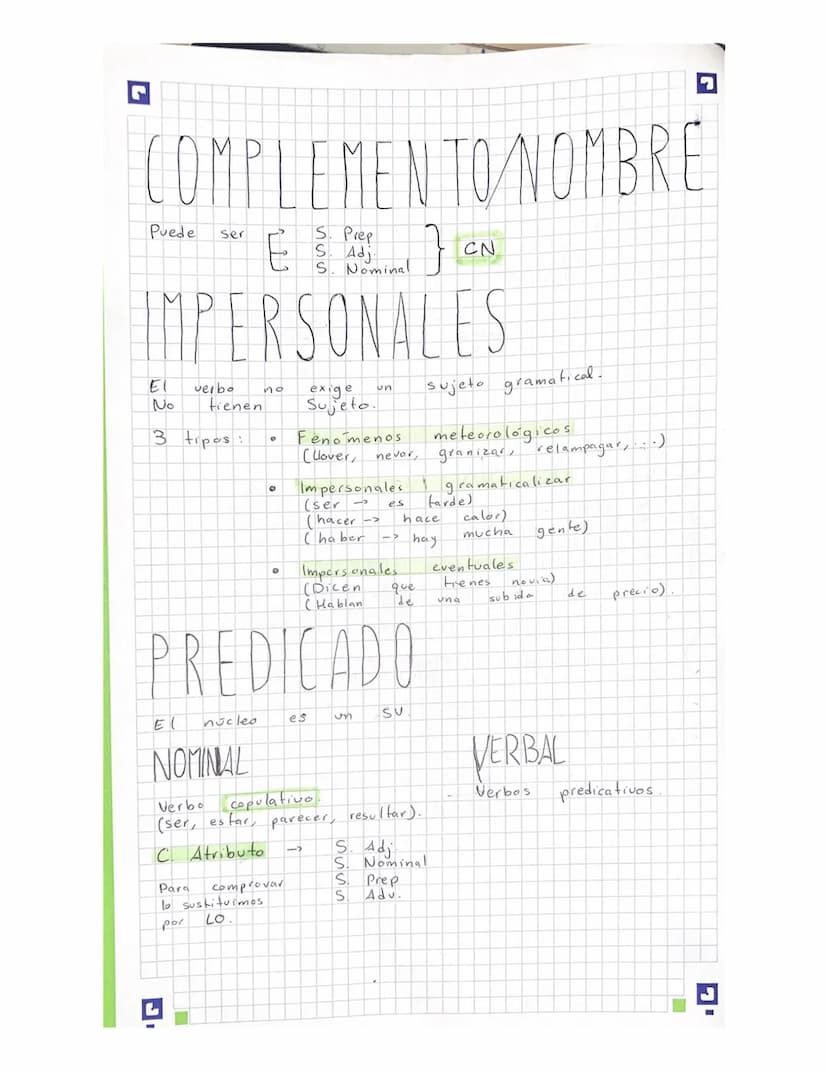 COMPLEMENTO/NOMBRE
Puede ser
S. Prep
S. Adj.
S. Nominal
CN
IMPERSONALES
El verbo no exige un sujeto gramatical.
No tienen Sujeto.
3 tipos: • Fenómenos meteorológicos
(Llover, nevar, granizar, relampagar,...)
• Impersonales gramaticalizar
(ser -> es tarde)
(hacer -> hace calor)
(haber -> hay mucha gente)
• Impersonales eventuales
(Dicen que tienes novia)
(Hablan de una subida de precio).
PREDICADO
El núcleo es un SV.
NOMINAL
Verbo copulativo.
(ser, estar, parecer, resultar).
C. Atributo ->
S. Adj.
S. Nominal
S. Prep
S. Adv.
Para comprovar
lo sustituimos
por LO.
VERBAL
- Verbos predicativos.